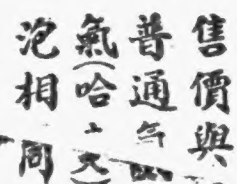 售價與
普通
氣(哈
泡相同